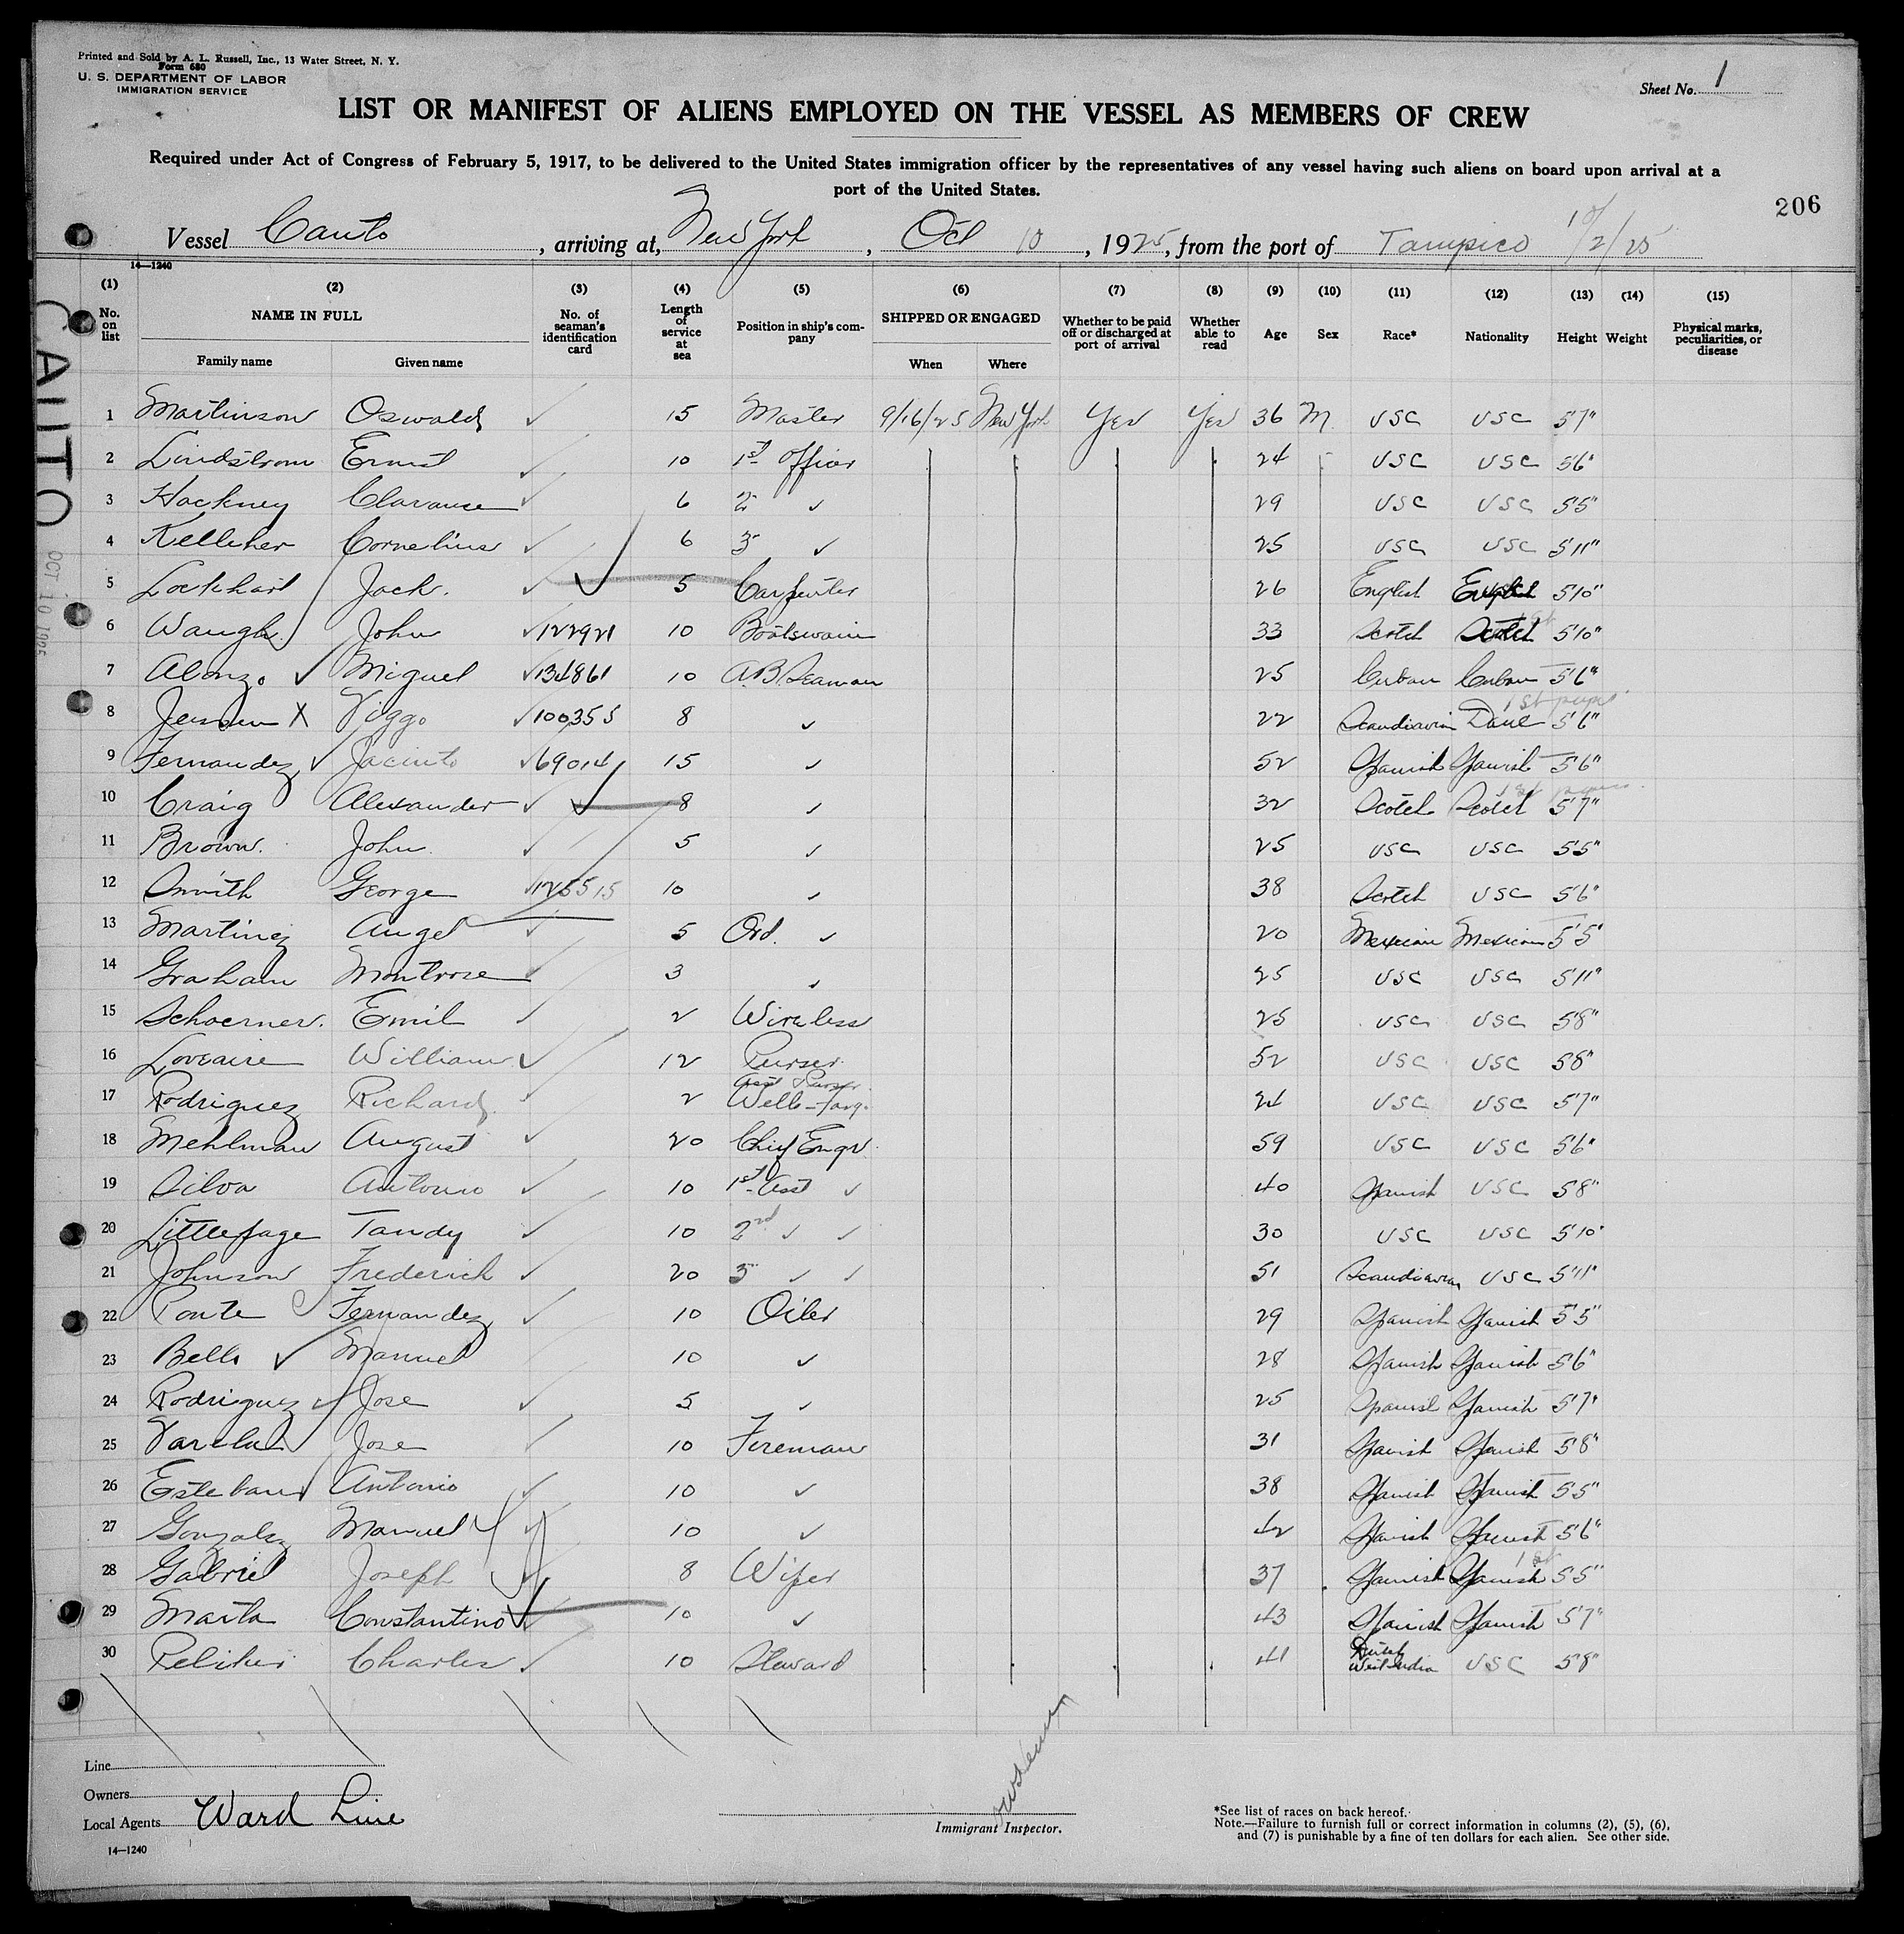 Printed and Sold by A. L. Russell, Inc., 13 Water Street, N. Y.
Form 680
U. S. DEPARTMENT OF LABOR
IMMIGRATION SERVICE
Sheet No. 1
LIST OR MANIFEST OF ALIENS EMPLOYED ON THE VESSEL AS MEMBERS OF CREW
Required under Act of Congress of February 5, 1917, to be delivered to the United States immigration officer by the representatives of any vessel having such aliens on board upon arrival at a
port of the United States.
206
Vessel Cauto, arriving at, New York, Oct 10, 1925, from the port of Tampico 10/2/25
14—1240
CAUTO
OCT 10 1925
(1) (2) (3) (4) (5) (6) (7) (8) (9) (10) (11) (12) (13) (14) (15)
No. on list NAME IN FULL Family name Given name No. of seaman's identification card Length of service at sea Position in ship's company SHIPPED OR ENGAGED When Where Whether to be paid off or discharged at port of arrival Whether able to read Age Sex Race* Nationality Height Weight Physical marks, peculiarities, or disease
1 Martinson Oswald ✓ 15 Master 9/16/25 New York Yes Yes 36 M USC USC 5'7"
2 Lindstrom Ernst ✓ 10 1st Officer 24 USC USC 5'6"
3 Hackney Clarance ✓ 6 2 ✓ 29 USC USC 5'5"
4 Kelleher Cornelius ✓ 6 3 ✓ 25 USC USC 5'11"
5 Lockhart Jack. ✓ 5 Carpenter 26 English English 5'10"
6 Waugh John ✓122921 10 Boatswain 33 Scotch Scotch 5'10"
7 Alonzo ✓ Miguel ✓134861 10 A.B. Seaman 25 Cuban Cuban 5'6"
8 Jensen X Viggo ✓100355 8 ✓ 22 Scandiavian Dane 1st papers 5'6"
9 Fernandez ✓ Jacinto ✓69014 15 ✓ 52 Spanish Spanish 5'6"
10 Craig Alexander ✓ 8 ✓ 32 Scotch Scotch 1st papers 5'7"
11 Brown. John ✓ 5 ✓ 25 USC USC 5'5"
12 Smith George ✓125515 10 ✓ 38 Scotch USC 5'6"
13 Martinez Angel ✓ 5 Ord. ✓ 20 Mexican Mexican 5'5"
14 Graham Montrose ✓ 3 ✓ 25 USC USC 5'11"
15 Schoerner. Emil ✓ 2 Wireless 25 USC USC 5'8"
16 Loveaire William ✓ 12 Purser 52 USC USC 5'8"
17 Rodriguez Richard ✓ 2 Asst Purser Wells-Farg. 24 USC USC 5'7"
18 Mehlman August ✓ 20 Chief Engr. 59 USC USC 5'6"
19 Silva Antonio ✓ 10 1st Asst ✓ 40 Spanish USC 5'8"
20 Littlepage Tandy ✓ 10 2nd ✓ ✓ 30 USC USC 5'10"
21 Johnson Frederick ✓ 20 3 ✓ ✓ 51 Scandiavian USC 5'11"
22 Ponte Fernandez ✓ 10 Oiler 29 Spanish Spanish 5'5"
23 Bello ✓ Manuel 10 ✓ 28 Spanish Spanish 5'6"
24 Rodriguez ✓ Jose ✓ 5 ✓ 25 Spanish Spanish 5'7"
25 Varela Jose ✓ 10 Fireman 31 Spanish Spanish 5'8"
26 Esteban Antonio ✓ 10 ✓ 38 Spanish Spanish 5'5"
27 Gonzalez Manuel ✓ 10 ✓ 42 Spanish Spanish 5'6"
28 Gabriel Joseph ✓ 8 Wiper 37 Spanish Spanish 1st 5'5"
29 Marta Constantino ✓ 10 ✓ 43 Spanish Spanish 5'7"
30 Charles ✓ 10 Steward 41 Dutch West India USC 5'8"
Line
Owners
Local Agents Ward Line
14—1240
Immigrant Inspector.
*See list of races on back hereof.
Note.—Failure to furnish full or correct information in columns (2), (5), (6),
and (7) is punishable by a fine of ten dollars for each alien. See other side.